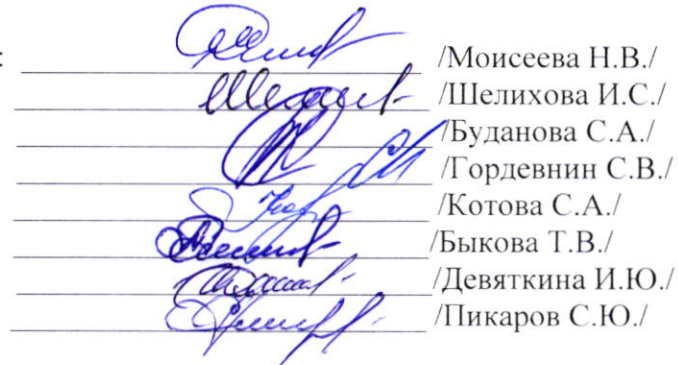 : /Моисеева Н.В./
/Шелихова И.С./
/Буданова С.А./
/Гордевнин С.В./
/Котова С.А./
/Быкова Т.В./
/Девяткина И.Ю./
/Пикаров С.Ю./